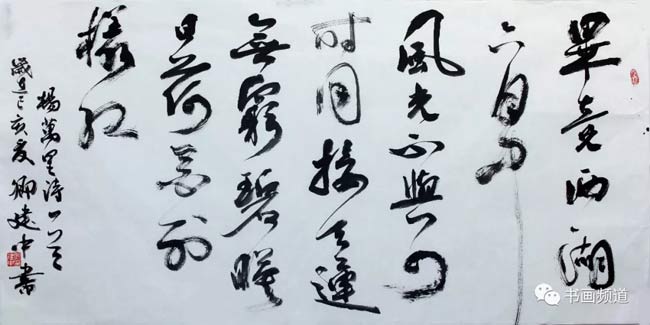 畢竟西湖
六月中
風光不與四
時同接天蓮
無窮碧映
日荷花別
樣紅
楊萬里詩一首
歲在己亥夏卿建中書
书画频道